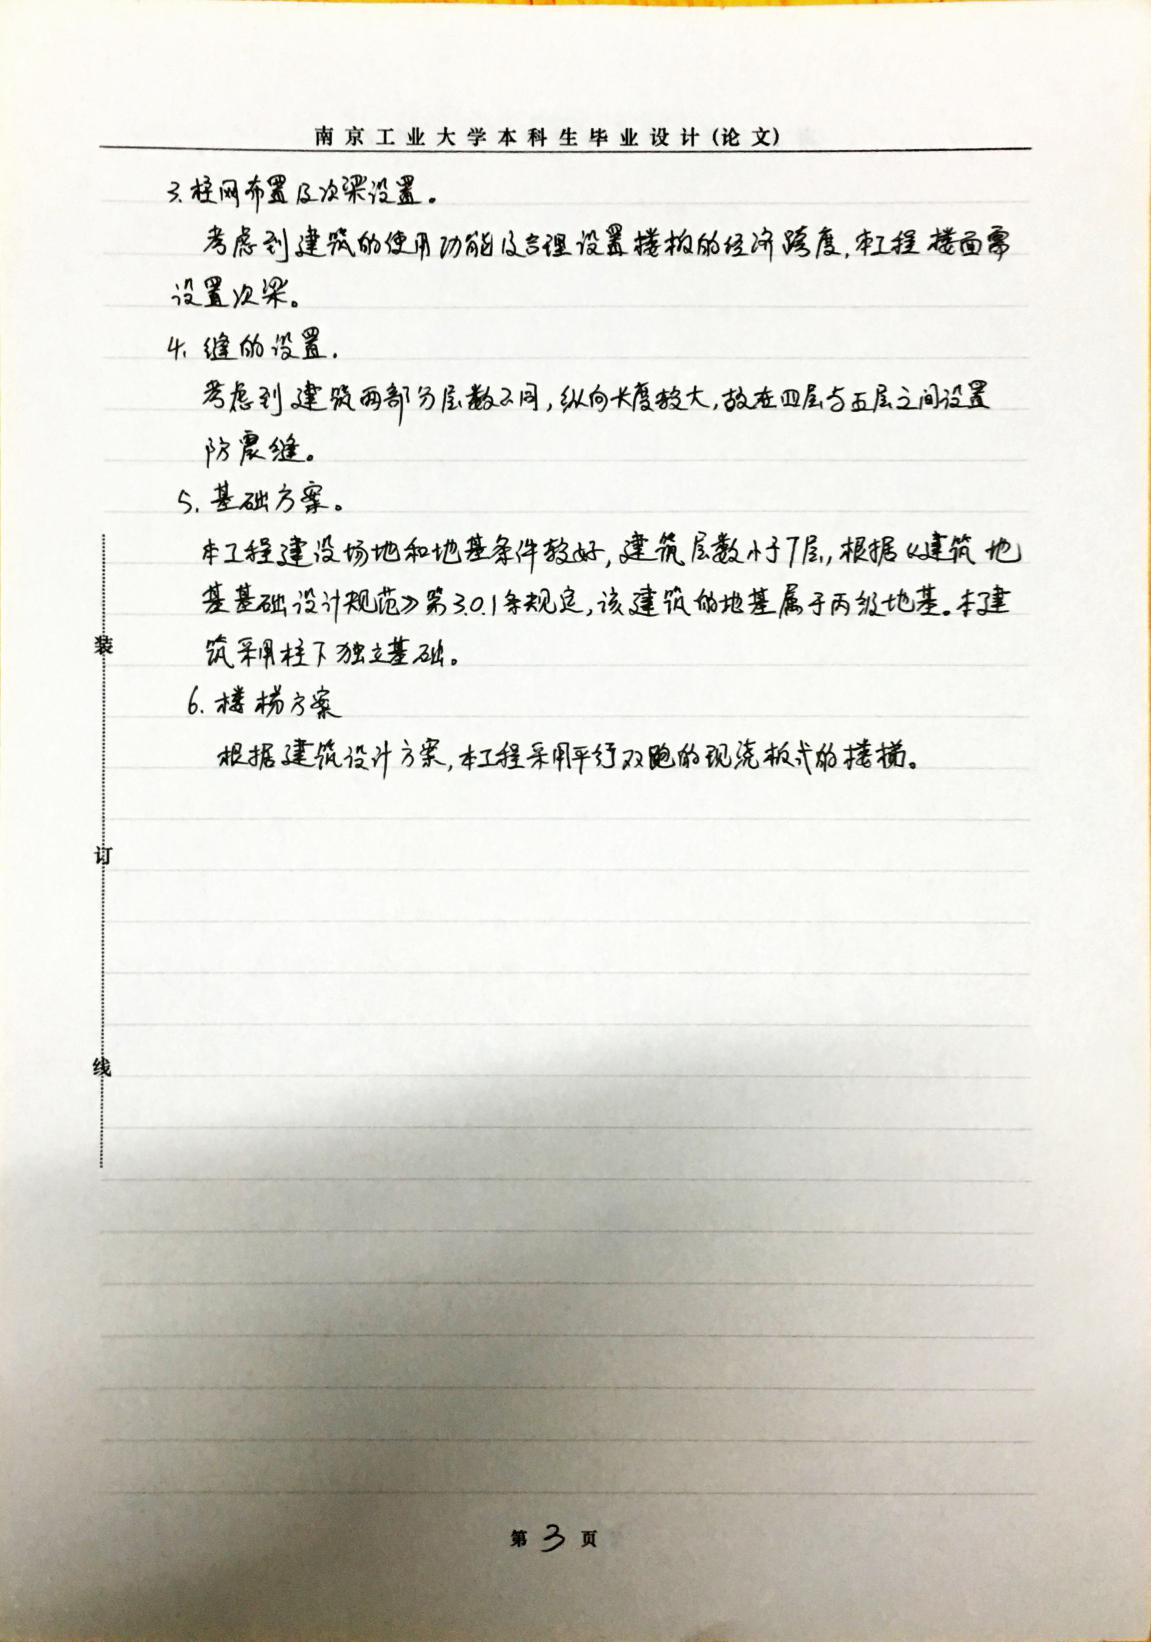 南京工业大学本科生毕业设计(论文)
3.柱网布置及次梁设置。
考虑到建筑的使用功能及合理设置楼板的经济跨度,本工程楼面需
设置次梁。
4.缝的设置.
考虑到建筑两部分层数不同,纵向长度较大,故在四层与五层之间设置
防震缝。
5.基础方案。
本工程建设场地和地基条件较好,建筑层数小于7层,根据《建筑地
基基础设计规范》第3.0.1条规定,该建筑的地基属于丙级地基。本建
装
筑采用柱下独立基础。
6.楼梯方案
根据建筑设计方案,本工程采用平行双跑的现浇板式的楼梯。
订
线
第3页